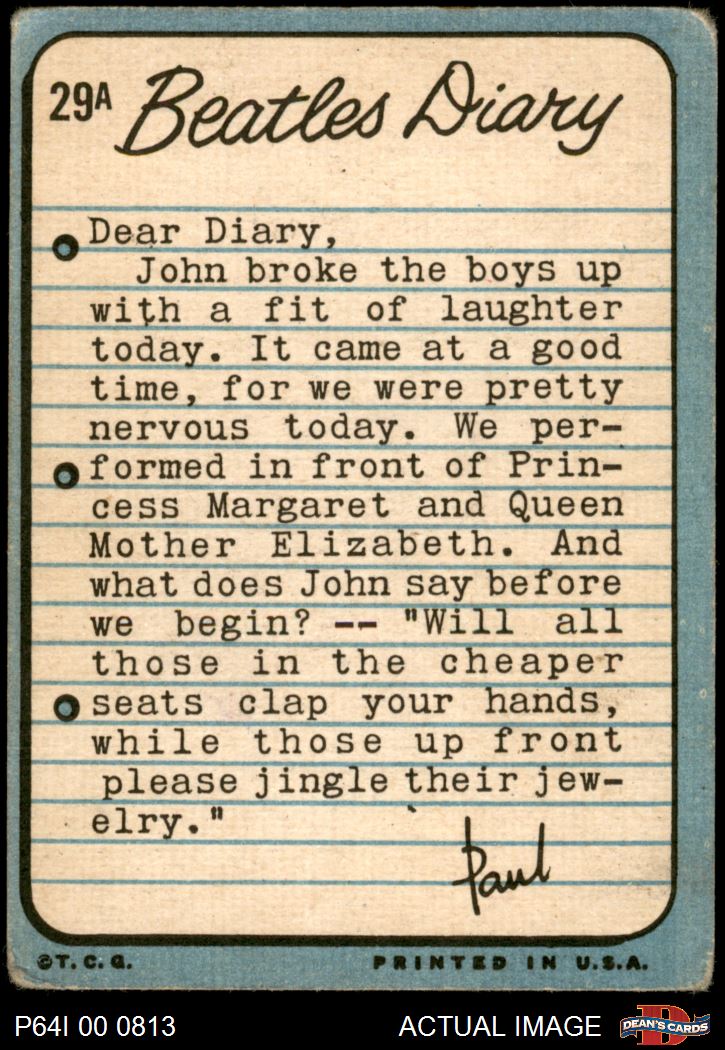 29A Beatles Diary
Dear Diary,
John broke the boys up
with a fit of laughter
today. It came at a good
time, for we were pretty
nervous today. We per-
formed in front of Prin-
cess Margaret and Queen
Mother Elizabeth. And
what does John say before
we begin? -- "Will all
those in the cheaper
seats clap your hands,
while those up front
please jingle their jew-
elry."
Paul
©T.C.G. PRINTED IN U.S.A.
P64I 00 0813 ACTUAL IMAGE D DEAN'S CARDS